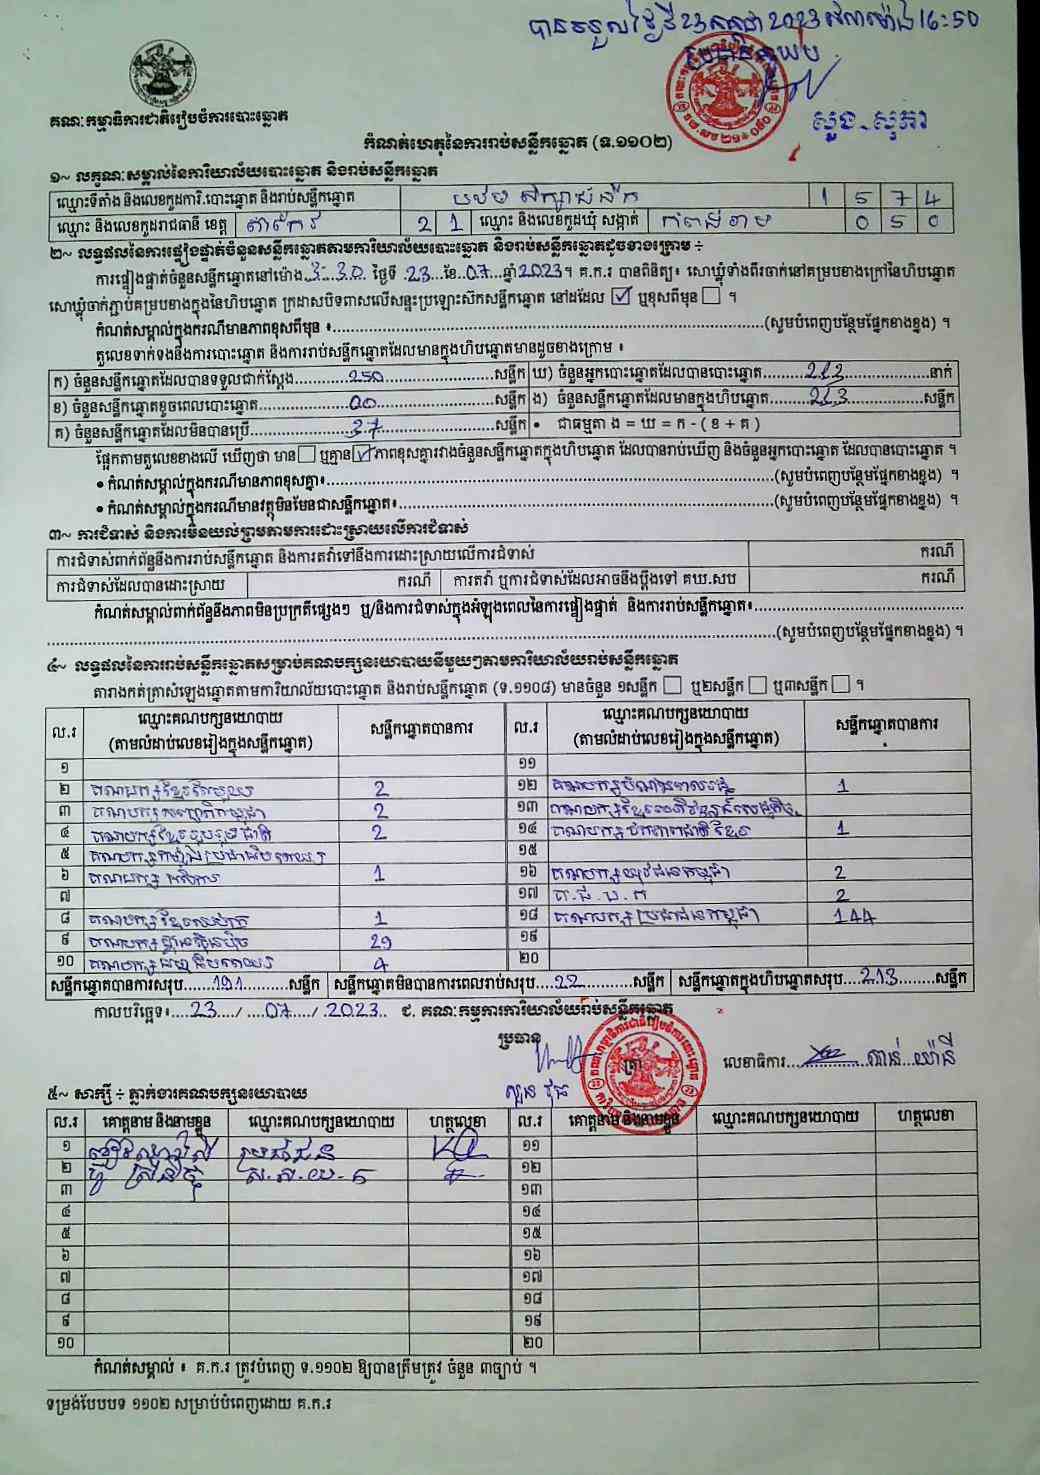 បានទទួលថ្ងៃទី 23 កក្កដា 2023 វេលាម៉ោង 16:50
គណៈកម្មាធិការជាតិរៀបចំការបោះឆ្នោត
កំណត់ហេតុនៃការរាប់សន្លឹកឆ្នោត (ទ.១១០២)
១~ លក្ខណៈសម្គាល់នៃការិយាល័យបោះឆ្នោត និងរាប់សន្លឹកឆ្នោត
ឈ្មោះទីតាំង និងលេខកូដការិ.បោះឆ្នោត និងរាប់សន្លឹកឆ្នោត 1 5 7 4
ឈ្មោះ និងលេខកូដរាជធានី ខេត្ត តាកែវ 2 1 ឈ្មោះ និងលេខកូដឃុំ សង្កាត់ 0 5 0
២~ លទ្ធផលនៃការផ្ទៀងផ្ទាត់ចំនួនសន្លឹកឆ្នោតតាមការិយាល័យបោះឆ្នោត និងរាប់សន្លឹកឆ្នោតដូចខាងក្រោម ÷
ការផ្ទៀងផ្ទាត់ចំនួនសន្លឹកឆ្នោតនៅម៉ោង..3:30 ថ្ងៃទី 23 ខែ 07 ឆ្នាំ 2023។ គ.ក.រ បានពិនិត្យ៖ សោឃ្លុំទាំងពីរចាក់នៅគម្របខាងក្រៅនៃហិបឆ្នោត
សោឃ្លុំចាក់ភ្ជាប់គម្របខាងក្នុងនៃហិបឆ្នោត ក្រដាសបិទពាសលើសន្ទះប្រឡោះស៊កសន្លឹកឆ្នោត នៅដដែល ☑ ឬខុសពីមុន ☐ ។
កំណត់សម្គាល់ក្នុងករណីមានភាពខុសពីមុន ៖........(សូមបំពេញបន្ថែមផ្នែកខាងខ្នង) ។
តួលេខទាក់ទងនឹងការបោះឆ្នោត និងការរាប់សន្លឹកឆ្នោតដែលមានក្នុងហិបឆ្នោតមានដូចខាងក្រោម ៖
ក) ចំនួនសន្លឹកឆ្នោតដែលបានទទួលជាក់ស្តែង........250........សន្លឹក ឃ) ចំនួនអ្នកបោះឆ្នោតដែលបានបោះឆ្នោត........212........នាក់
ខ) ចំនួនសន្លឹកឆ្នោតខូចពេលបោះឆ្នោត........00........សន្លឹក ង) ចំនួនសន្លឹកឆ្នោតដែលមានក្នុងហិបឆ្នោត........213........សន្លឹក
គ) ចំនួនសន្លឹកឆ្នោតដែលមិនបានប្រើ........37........សន្លឹក • ជាធម្មតា ង = ឃ = ក - ( ខ + គ )
ផ្អែកតាមតួលេខខាងលើ ឃើញថា មាន ☐ ឬគ្មាន ☑ ភាពខុសគ្នារវាងចំនួនសន្លឹកឆ្នោតក្នុងហិបឆ្នោត ដែលបានរាប់ឃើញ និងចំនួនអ្នកបោះឆ្នោត ដែលបានបោះឆ្នោត ។
• កំណត់សម្គាល់ក្នុងករណីមានភាពខុសគ្នា៖........(សូមបំពេញបន្ថែមផ្នែកខាងខ្នង) ។
• កំណត់សម្គាល់ក្នុងករណីមានវត្ថុមិនមែនជាសន្លឹកឆ្នោត៖........(សូមបំពេញបន្ថែមផ្នែកខាងខ្នង) ។
៣~ ការជំទាស់ និងការមិនយល់ព្រមតាមការដោះស្រាយលើការជំទាស់
ការជំទាស់ពាក់ព័ន្ធនឹងការរាប់សន្លឹកឆ្នោត និងការតវ៉ាទៅនឹងការដោះស្រាយលើការជំទាស់ ករណី
ការជំទាស់ដែលបានដោះស្រាយ ករណី ការតវ៉ា ឬការជំទាស់ដែលអាចនឹងប្តឹងទៅ គឃ.សប ករណី
កំណត់សម្គាល់ពាក់ព័ន្ធនឹងភាពមិនប្រក្រតីផ្សេងៗ ឬ/និងការជំទាស់ក្នុងអំឡុងពេលនៃការផ្ទៀងផ្ទាត់ និងការរាប់សន្លឹកឆ្នោត៖........
........(សូមបំពេញបន្ថែមផ្នែកខាងខ្នង) ។
៤~ លទ្ធផលនៃការរាប់សន្លឹកឆ្នោតសម្រាប់គណបក្សនយោបាយនីមួយៗតាមការិយាល័យរាប់សន្លឹកឆ្នោត
តារាងកត់ត្រាសំឡេងឆ្នោតតាមការិយាល័យបោះឆ្នោត និងរាប់សន្លឹកឆ្នោត (ទ.១១០៨) មានចំនួន ១សន្លឹក ☐ ឬ២សន្លឹក ☐ ឬ៣សន្លឹក ☐ ។
ល.រ ឈ្មោះគណបក្សនយោបាយ (តាមលំដាប់លេខរៀងក្នុងសន្លឹកឆ្នោត) សន្លឹកឆ្នោតបានការ ល.រ ឈ្មោះគណបក្សនយោបាយ (តាមលំដាប់លេខរៀងក្នុងសន្លឹកឆ្នោត) សន្លឹកឆ្នោតបានការ
១ ១១
២ គណបក្សខ្មែរតែមួយ 2 ១២ 1
៣ 2 ១៣ គណបក្សខ្មែរអភិវឌ្ឍន៍សេដ្ឋកិច្ច
៤ គណបក្សខ្មែររួបរួមជាតិ 2 ១៤ គណបក្សឯកភាពជាតិខ្មែរ 1
៥ ១៥
៦ គណបក្ស 1 ១៦ គណបក្សយុវជនកម្ពុជា 2
៧ ១៧ 2
៨ គណបក្ស 1 ១៨ គណបក្សប្រជាជនកម្ពុជា 144
៩ គណបក្សហ៊្វុនស៊ិនប៉ិច 29 ១៩
១០ គណបក្ស 4 ២០
សន្លឹកឆ្នោតបានការសរុប....191........សន្លឹក សន្លឹកឆ្នោតមិនបានការពេលរាប់សរុប....22........សន្លឹក សន្លឹកឆ្នោតក្នុងហិបឆ្នោតសរុប....213........សន្លឹក
កាលបរិច្ឆេទ៖....23..../....07..../.2023.. ជ. គណៈកម្មការការិយាល័យរាប់សន្លឹកឆ្នោត
ប្រធាន
ត្រា
លេខាធិការ
៥~ សាក្សី ÷ ភ្នាក់ងារគណបក្សនយោបាយ
ល.រ គោត្តនាម និងនាមខ្លួន ឈ្មោះគណបក្សនយោបាយ ហត្ថលេខា ល.រ គោត្តនាម និងនាមខ្លួន ឈ្មោះគណបក្សនយោបាយ ហត្ថលេខា
១ ប្រជាជន ១១
២ ១២
៣ ១៣
៤ ១៤
៥ ១៥
៦ ១៦
៧ ១៧
៨ ១៨
៩ ១៩
១០ ២០
កំណត់សម្គាល់ ៖ គ.ក.រ ត្រូវបំពេញ ទ.១១០២ ឱ្យបានត្រឹមត្រូវ ចំនួន ៣ច្បាប់ ។
ទម្រង់បែបបទ ១១០២ សម្រាប់បំពេញដោយ គ.ក.រ